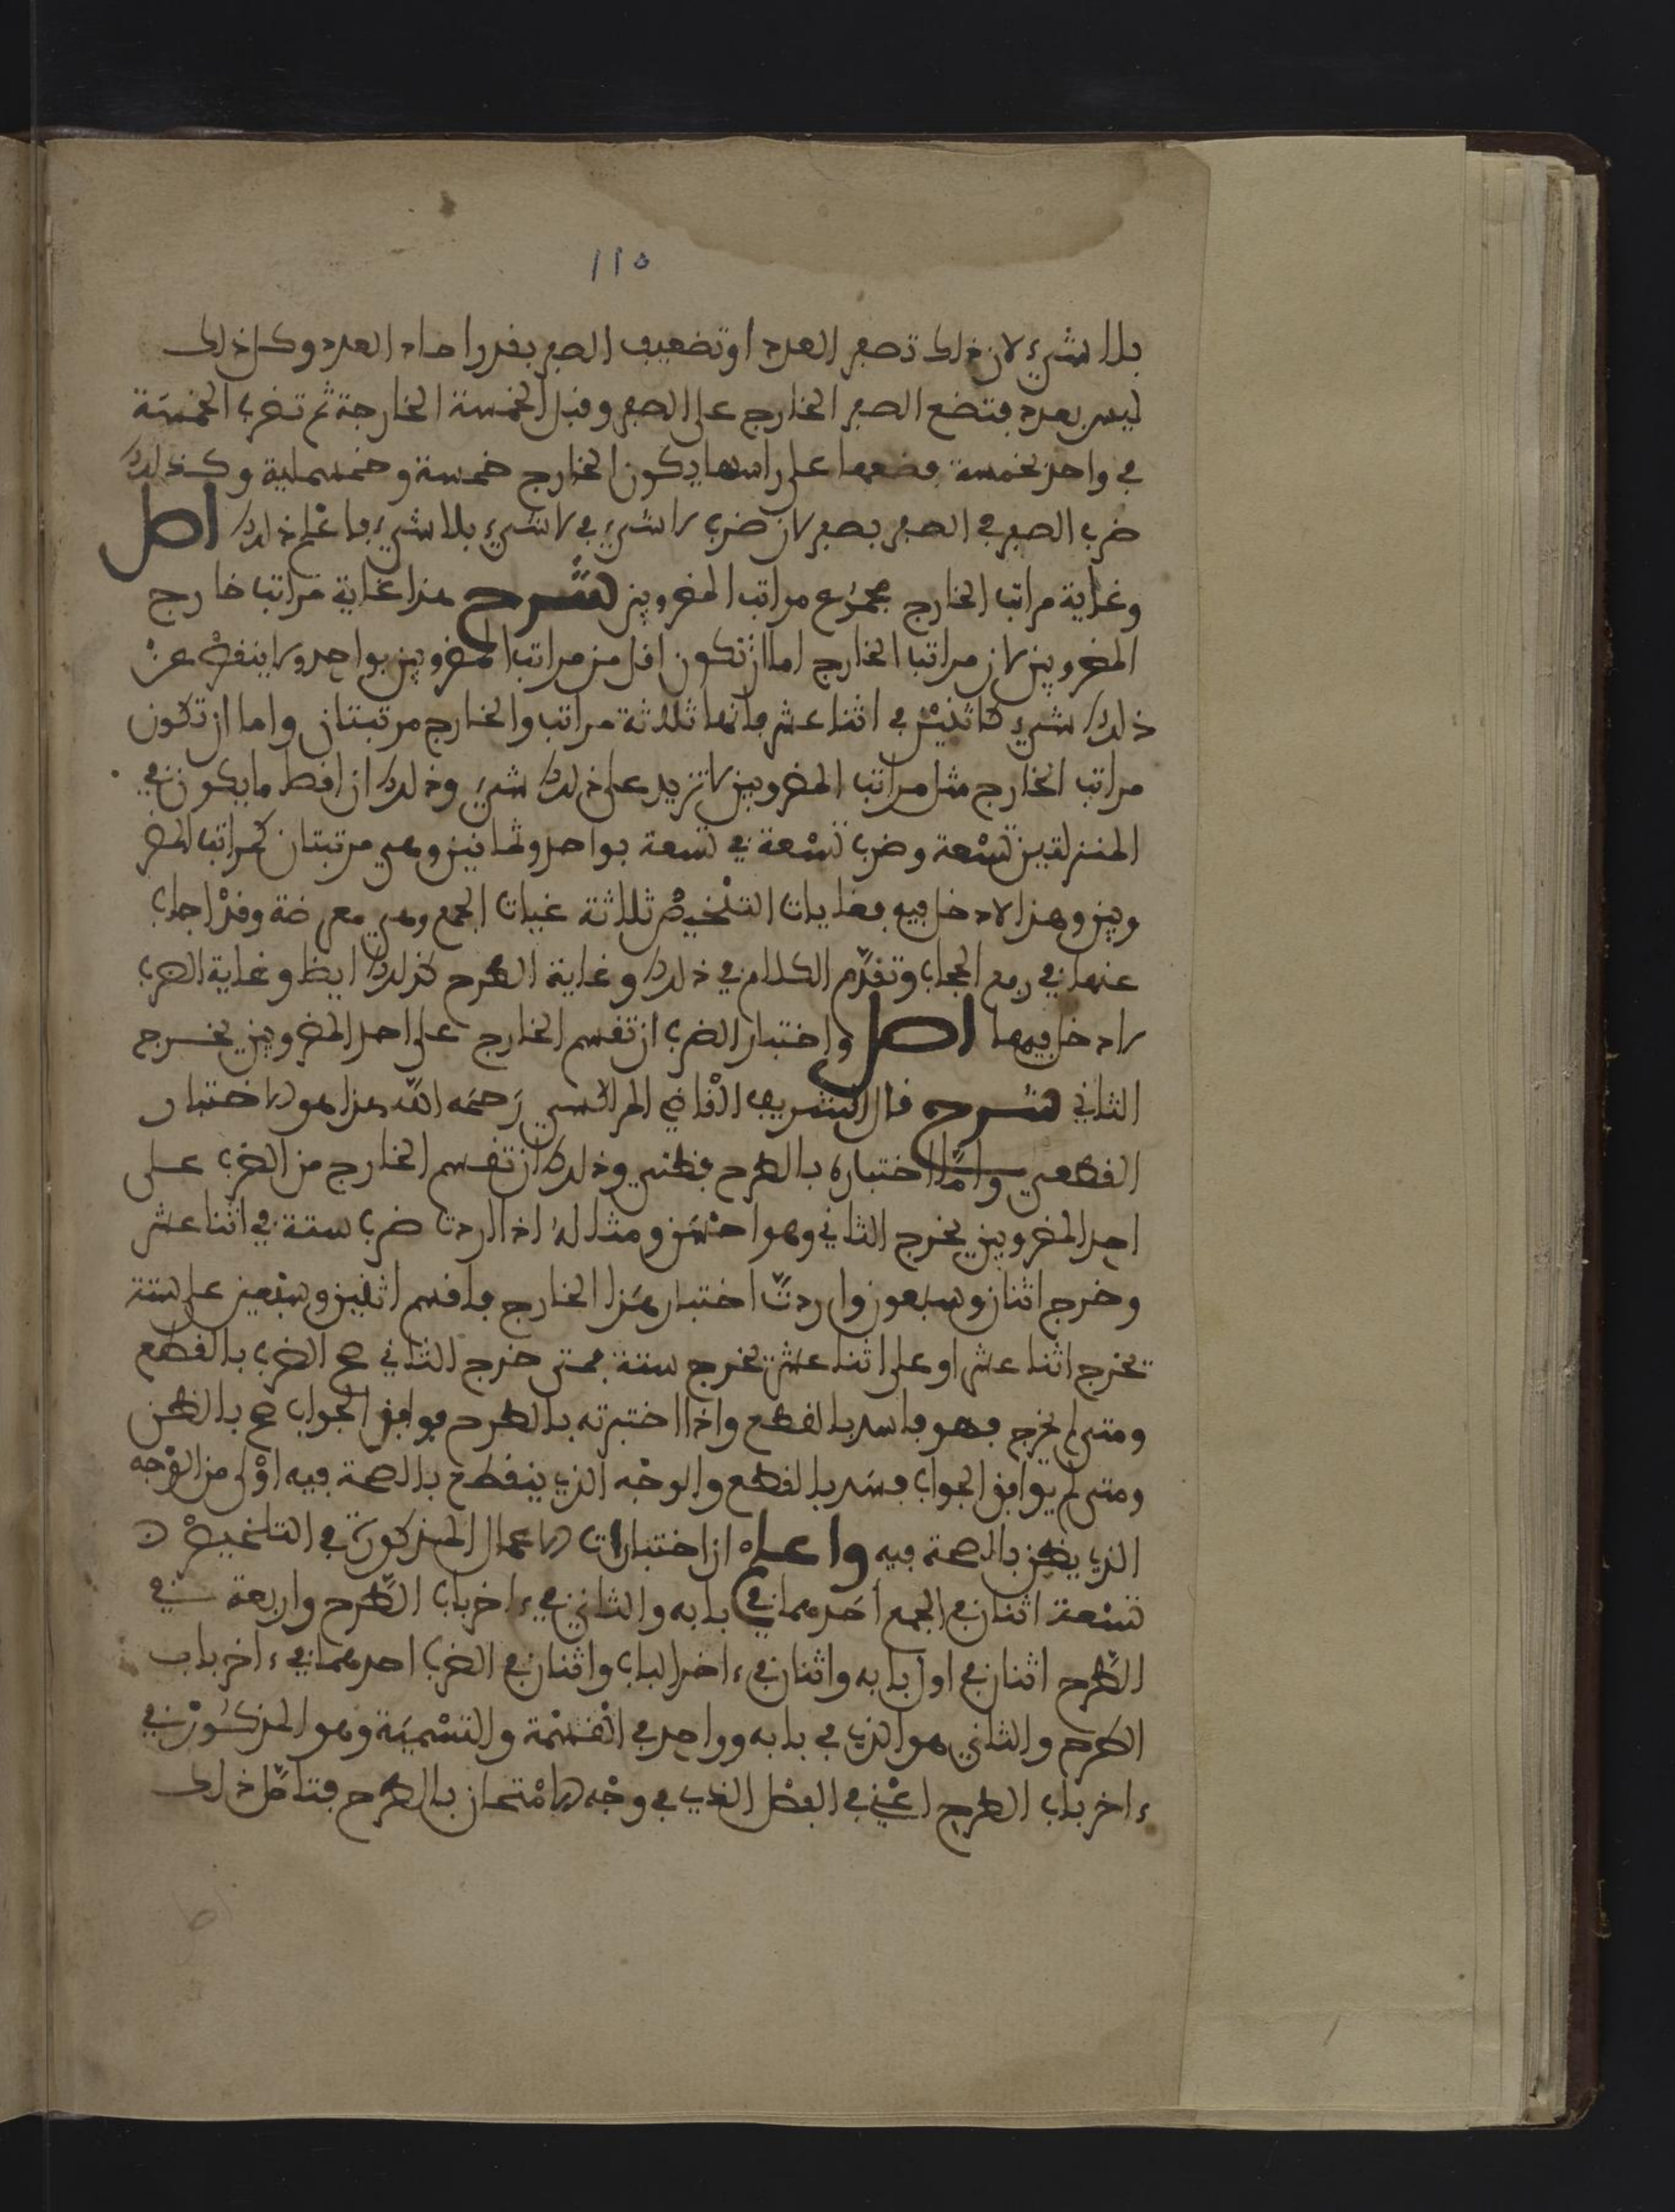 ١١٥
بلا شيء لان ذلك تصفير العدد او تضعيف الصفر بقدر احاد العدد وكل ذلك
ليس بعدد فتضع الصفر الخارج على الصفر وقبل الخمسة الخارجة ثم تضرب الخمسة
في واحد بخمسة فضعها على راسها يكون الخارج خمسة وخمسماية وكذلك
ضرب الصفر في الصفر بصفر لان ضرب لا شيء في لا شيء بلا شيء فاعلم ذلك اصل
وغاية مراتب الخارج مجموع مراتب المضروبين شرح هذا غاية مراتب خارج
المضروبين لان مراتب الخارج اما ان تكون اقل من مراتب المضروبين بواحد ولا ينقص عن
ذلك شيء كاثنين في اثنا عشر فانها ثلاثة مراتب والخارج مرتبتان واما ان تكون
مراتب الخارج مثل مراتب المضروبين لا تزيد على ذلك شيء وذلك ان اقصا ما يكون في
المنزلتين تسعة وضرب تسعة في تسعة بواحد وثمانين وهي مرتبتان كمراتب المضر
وبين وهذا لا دخل فيه فغايات التلخيص ثلاثة غيات الجمع وهي معرضة وقد اجاب
عنها في رفع الحجاب وتقدم الكلام في ذلك وغاية الطرح كذلك ايظا وغاية الضرب
لا دخل فيها اصل واختبار الضرب ان تقسم الخارج على احد المضروبين يخرج
الثاني شرح قال الشريف القاضي المراكسي رحمه الله هذا هو الاختبار
القطعي واما اختباره بالطرح فظني وذلك ان تقسم الخارج من الضرب على
احد المضروبين يخرج الثاني وهو احسن ومثاله اذا اردت ضرب ستة في اثنا عشر
وخرج اثنان وسبعون واردت اختبار هذا الخارج فاقسم اثنين وسبعين على ستة
تخرج اثنا عشر او على اثنا عشر تخرج ستة فمتى خرج الثاني صح الضرب بالقطع
ومتى لم يخرج فهو فاسد بالقطع واذا اختبرته بالطرح فوافق الجواب صح بالظن
ومتى لم يوافق الجواب فسد بالقطع والوجه الذي ينقطع بالصحة فيه اولى من الوجه
الذي يظن بالصحة فيه واعلم ان اختبارات الاعمال المذكورة في التلخيص
تسعة اثنان في الجمع احدهما في بابه والثاني في ءاخر باب الطرح واربعة في
الطرح اثنان في اول بابه واثنان في ءاخر الباب واثنان في الضرب احدهما في ءاخر باب
الطرح والثاني هو الذي في بابه وواحد في القسمة والتسمية وهو المذكور في
ءاخر باب الطرح اعني في الفصل الذي في وجه الامتحان بالطرح فتامل ذلك